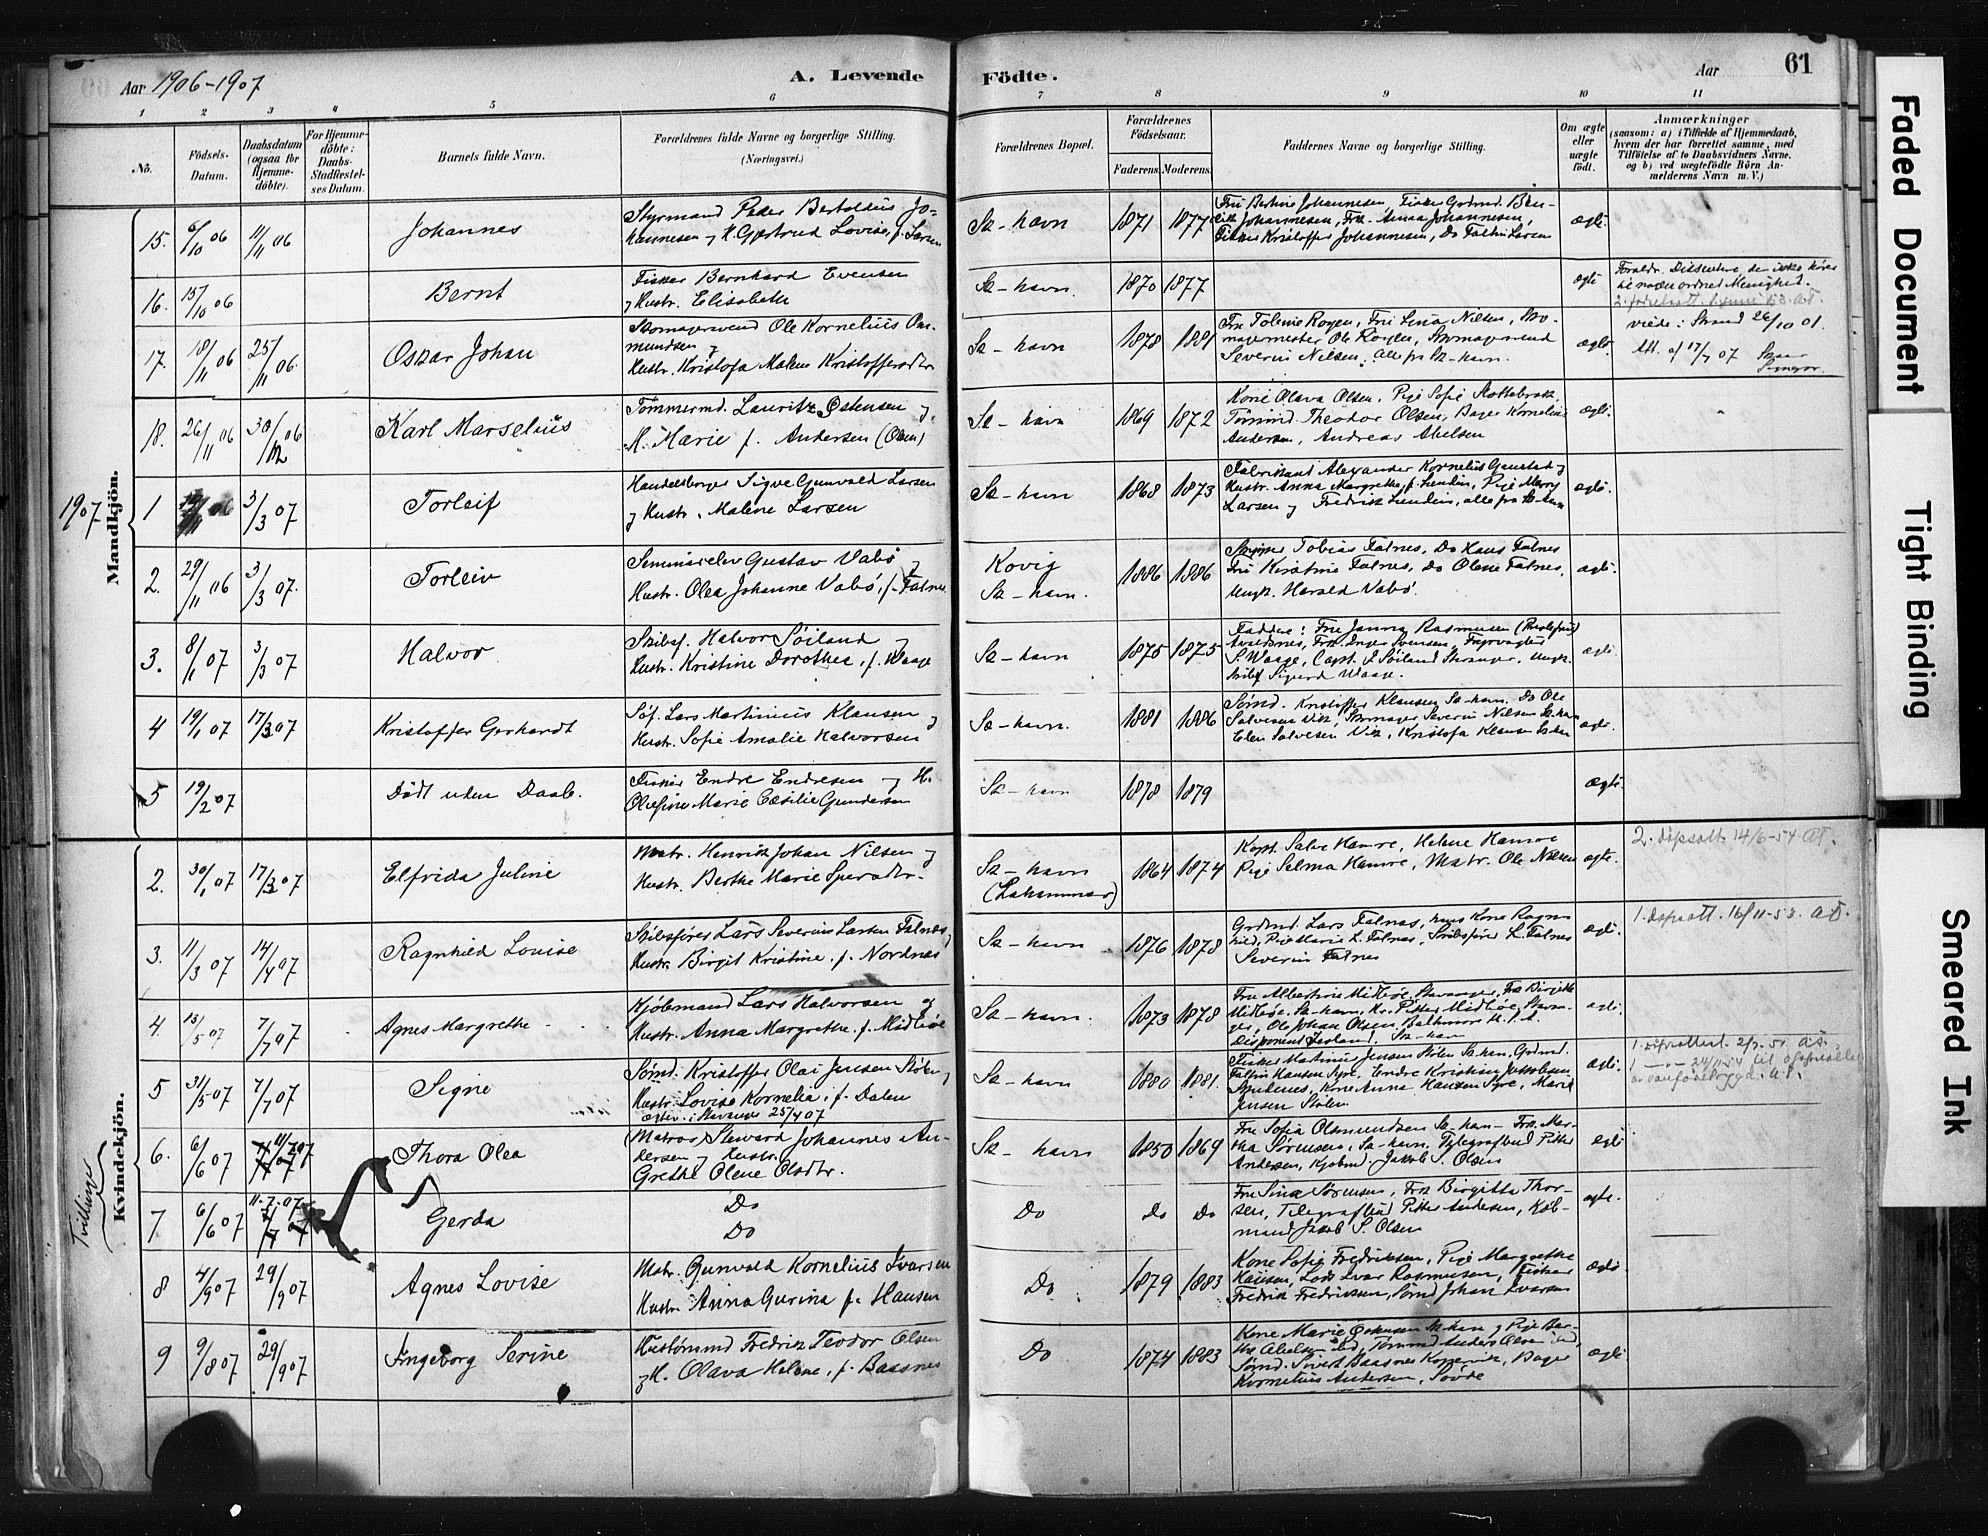 Aar 1906-1907
A. Levende Födte.
Aar
61
1 2 3 4 5 6 7 8 9 10 11
No.
Födsels-Datum.
Daabsdatum (ogsaa for Hjemmedöbte).
For Hjemmedöbte: Daabs-Stadfæstelses Datum.
Barnets fulde Navn.
Forældrenes fulde Navne og borgerlige Stilling. (Næringsvei.)
Forældrenes Bopæl.
Forældrenes Födselsaar.
Faderens. Moderens.
Faddernes Navne og borgerlige Stilling.
Om ægte eller uægte födt.
Anmærkninger
(saasom: a) i Tilfælde af Hjemmedaab, hvem der har forrettet samme, med Tilföielse af to Daabsvidners Navne, og b) ved uægtefödte Börn Anmelderens Navn m. V.)
Mandkjön.
15. 6/10 06 11/11 06 Johannes
Styrmand Peder Bertoldus Jo-
hannesen og H. Gjertrud Lovise, f. Larsen
Sk-havn 1871 1877
ægte.
16. 15/10 06 Bernt
Fisker Bernhard Evensen
og Hustr. Elisabeth
Sk-havn. 1870 1877
ægte
17. 18/11 06 25/11 06. Oskar Johan
Skomagersvend Ole Kornelius
mundsen og
Hustr. Kristofa Malene Kristoffersdtr
Sk-havn 1878 1881
Severin Nilsen, alle fra Sk-havn.
ægte.
viede i Strand 26/10 01.
Att. af 17/7 07
18. 26/11 06 30/12 06 Karl Marselius
Tömmermd. Lauritz Østensen og
H. Marie f. Andersen (Olsen)
Sk-havn 1869 1872
Kone Olava Olsen, Pige Sofie
Tömmd. Theodor Olsen, Bager Kornelius
Andersen, Andreas Abelsen
ægte.
1907.
1 3/3 07 Torleif
Handelsborger Sigve Gunvald Larsen
og Hustr. Malene Larsen
Sk-havn 1868 1873
Fabrikant Alexander Kornelius Gaustad og
Hustr. Anna Margrethe, f. Lundin, Pige Merry
Larsen og Fredrik Lundin, alle fra Sk-havn
ægte.
2. 29/11 06 3/3 07. Torleiv
Seminarelev Gustav Vabö og
Hustr. Olea Johanne Vabö, f. Falnes.
Kovig
Sk-havn. 1886 1886
Skipper Tobias Falnes, Do Hans Falnes
Fru Kirstine Falnes, Do Olene Falnes,
Ungk. Harald Vabö.
ægte.
3. 8/1 07 3/3 07 Halvor
Skibsf. Halvor Söiland og
Hustr. Kristine Dorothea, f. Waage
Sk-havn 1875 1875
Faddere: Fru Janna Rasmusen
S. Waage, Capt. J. Söiland Stavanger, Ungk.
Skibsf Sigurd Waage.
ægte.
4 19/1 07 17/3 07 Kristoffer Gerhardt
Söf. Lars Martinius Klausen og
Hustr. Sofie Amalie Halvorsen
Sk-havn. 1881 1886
Sömd. Kristoffer Klausen Sk-havn. Do Ole
Salvesen Vik, Skomager Severin Nilsen Sk-havn
Elen Salvesen Vik, Kristofa Klausen Sk-havn
ægte.
5 19/2 07 Dödt uden Daab.
Fisker Endre Endresen og H.
Olefine Marie Cæsilie Gundersen
Sk-havn 1878 1879
ægte.
Kvindekjön.
2. 30/1 07 17/3 07 Elfrida Juline
Matr. Henrik Johan Nilsen og
Hustr. Berthe Marie
Sk-havn 1864 1874
Kapt. Salve Hamre, Helene Hamre
Pige Selma Hamre, Matr. Ole Nilsen
ægte.
2. döpsatt. 14/6-54
3. 11/3 07 14/4 07 Ragnhild Louise
Skibsförer Lars Severin Larsen Falnes og
Hustr. Birgit Kristine, f. Nordnes
Sk-havn 1876 1878
Grdmd. Lars Falnes, hans Kone Ragn-
hild, Pige Marie L. Falnes, Skibsförer L. Falnes
Severin Falnes
ægte.
1. döpsatt.
4. 13/5 07 7/7 07 Agnes Margrethe
Kjöbmand Lars Halvorsen og
Hustr. Anna Margrethe, f. Midböe
Sk-havn. 1873 1878
Fru Albertine Midböe, Stavanger, Fru Birgitte
ger, Ole Johan Olsen, Baltimore
ægte.
5 31/5 07 7/7 07 Signe
Sömd. Kristoffer Olai Jensen Stölen og
Hustr. Lovise Kornelia, f. Dalen
Stavanger 25/4 07
Sk-havn 1880 1881.
Fisker Martinius Jensen Stölen Sk-havn, Grdmd.
Falkin Hansen Syre, Endre Kristian Jakobsen
Kone Anna Hansen Syre, Marie
Jensen Stölen
ægte.
Tvillinger
6. 6/6 07 11/7 07 Thora Olea
Matros Steward Johannes An-
dersen og Hustr.
Grethe Olene Olsdtr.
Sk-havn 1850 1869
Fru Sofia Olsmundsen Sk-havn - Frk. Mar-
tha Sörensen, Sk-havn, Telegrafbud Petter
Andersen, Kjöbmd. Jakob S. Olsen
ægte
7 6/6 07 11-7-07 Gerda
Do
Do
Do Do Do
Fru Sina Sörensen, Frk Birgitte Thor-
sen, Telegrafbud Petter Andersen, Köb-
mand Jakob S. Olsen
ægte.
8 4/9 07 29/9 07 Agnes Lovise
Matr. Gunvald Kornelius Ivarsen
Hustr. Anna Gurina f. Hansen
Do 1879 1883
Kone Sofie Fredriksen, Pige Margrethe
Hansen, Lods Ivar Rasmusen, Fisker
Fredrik Fredriksen, Sömd Johan Ivarsen
ægte
9 9/8 07 29/9 07 Ingeborg Serine
Hustömmd Fredrik Teodor Olsen
og H. Olava Helene, f. Baasnes
Do 1874 1883
Sömd. Sivert Baasnes Kopervik, Bager
Kornelius Andersen, Sövde
ægte
Faded Document
Tight Binding
Smeared Ink